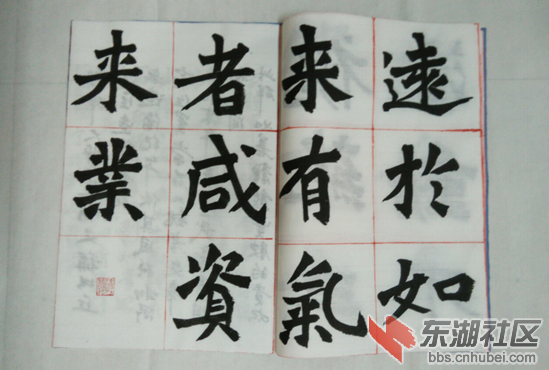 遠於如
来有氣
者咸資
来業
东湖社区
bbs.cnhubei.com